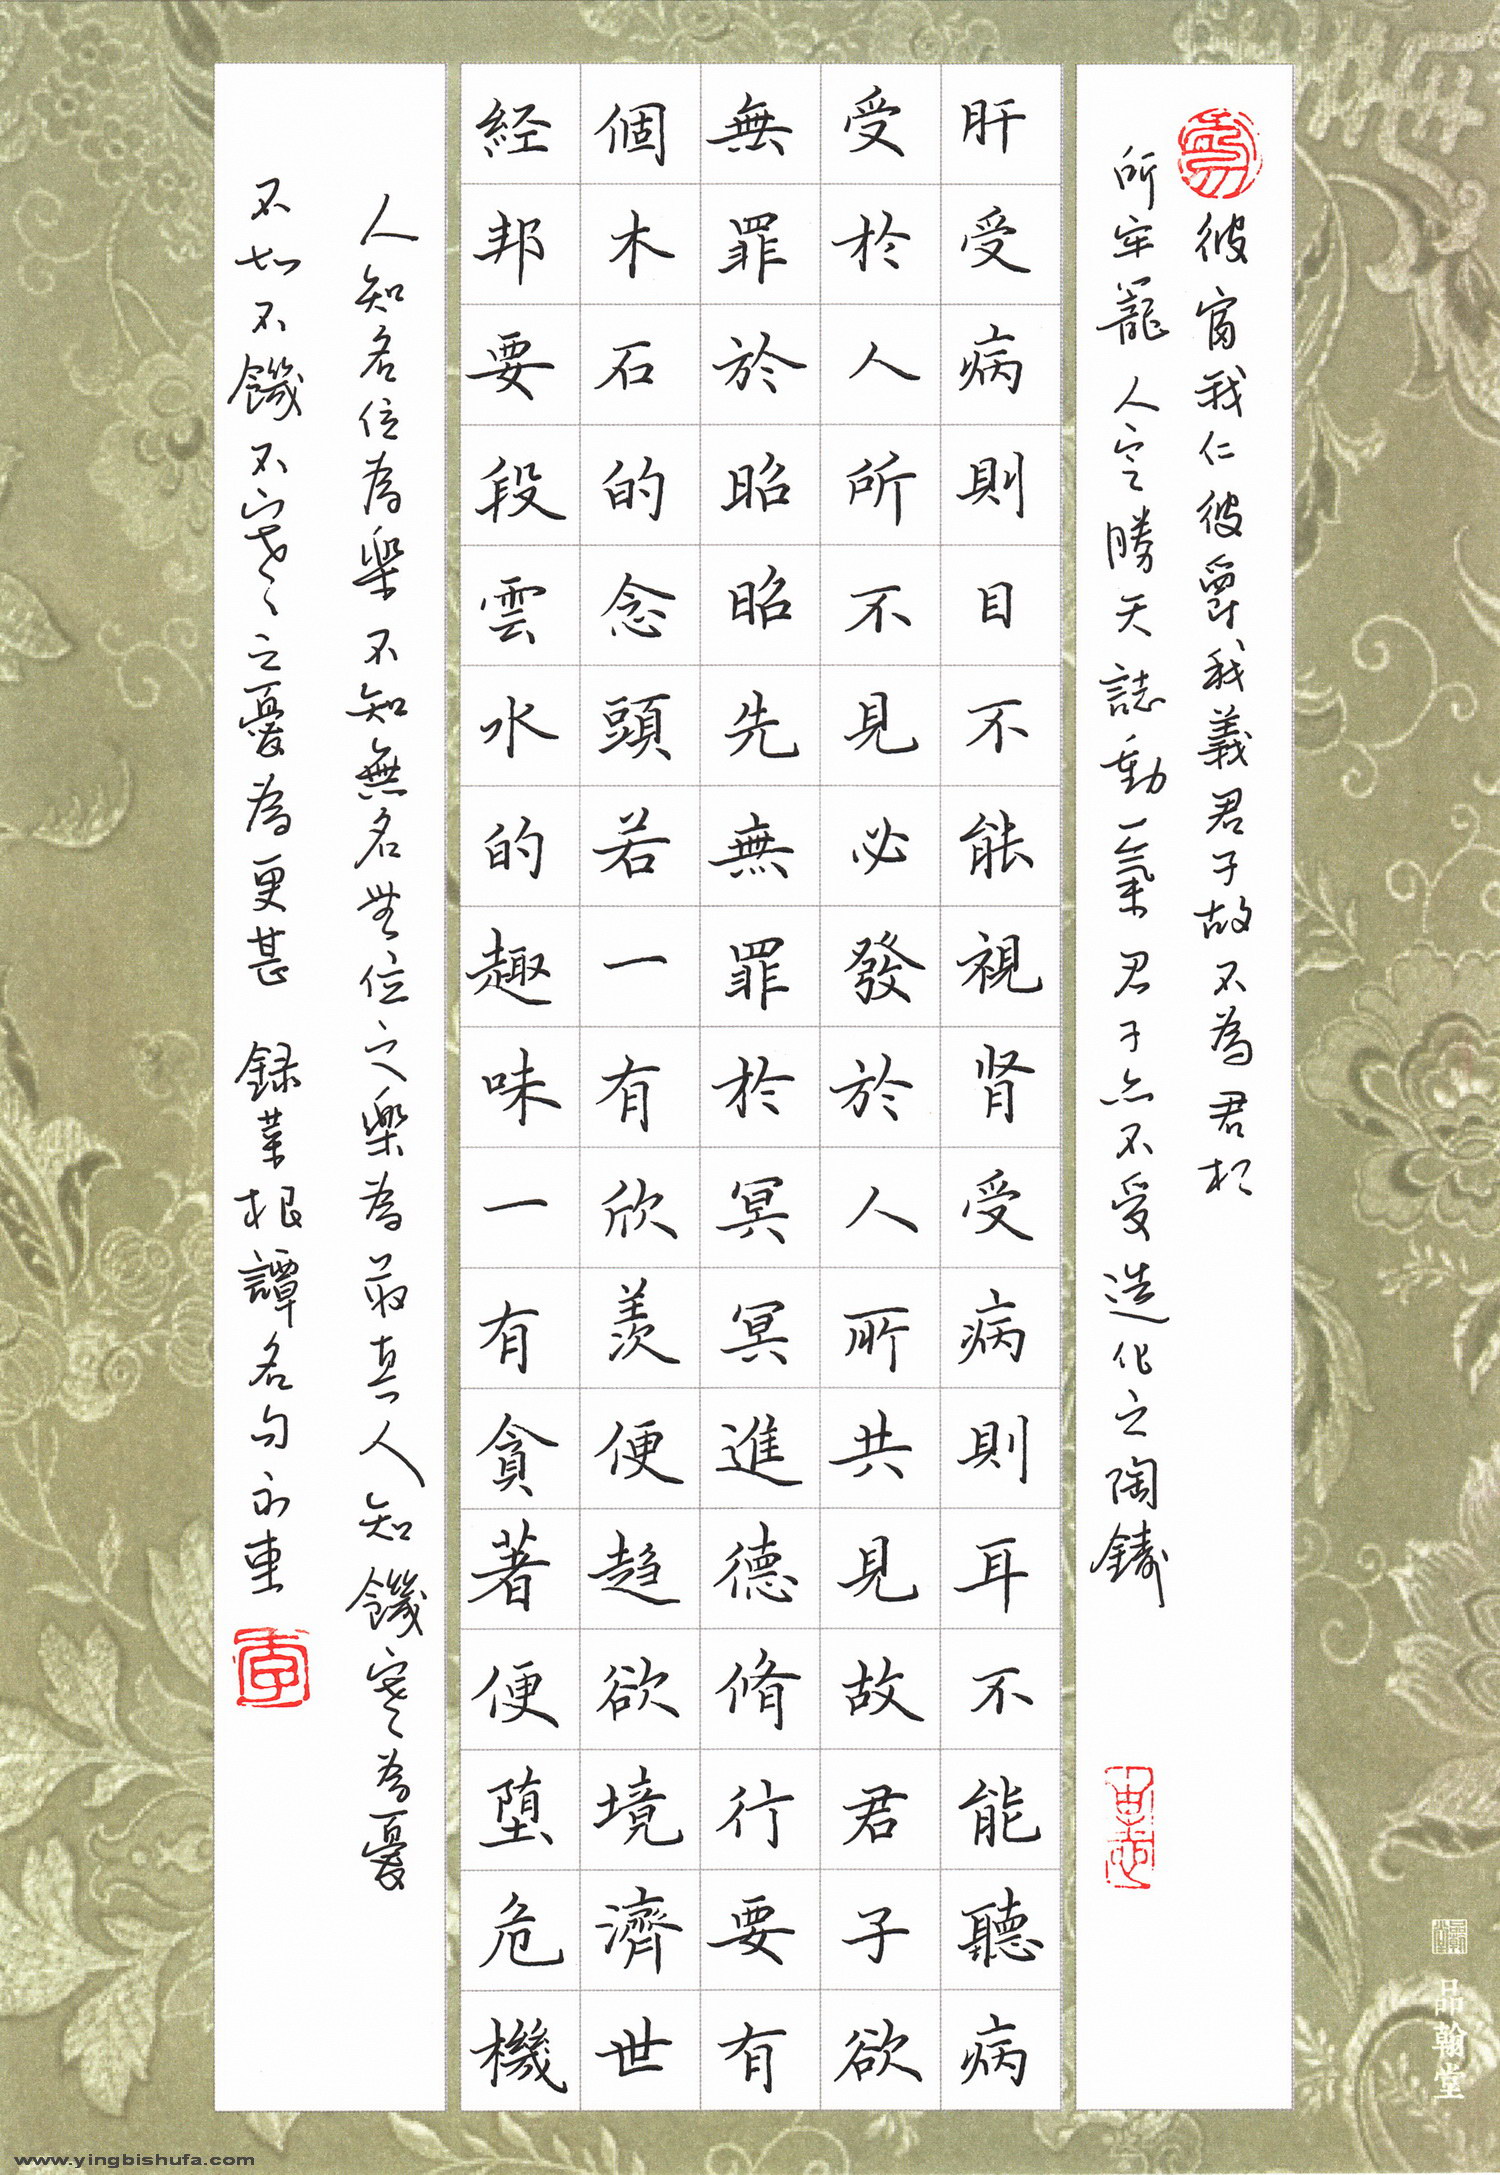 彼富我仁彼爵我義君子故不為君相
所牢籠人定勝天誌動一氣君子亦不受造化之陶鑄
肝受病則目不能視腎受病則耳不能聽病
受於人所不見必發於人所共見故君子欲
無罪於昭昭先無罪於冥冥進德脩行要有
個木石的念頭若一有欣羨便趍欲境濟世
経邦要段雲水的趣味一有貪著便堕危機
人知名位為樂不知無名無位之樂為最真人知饑寒為憂
不如不饑不寒之憂為更甚 録菜根譚名句
李
品翰堂
www.yingbishufa.com